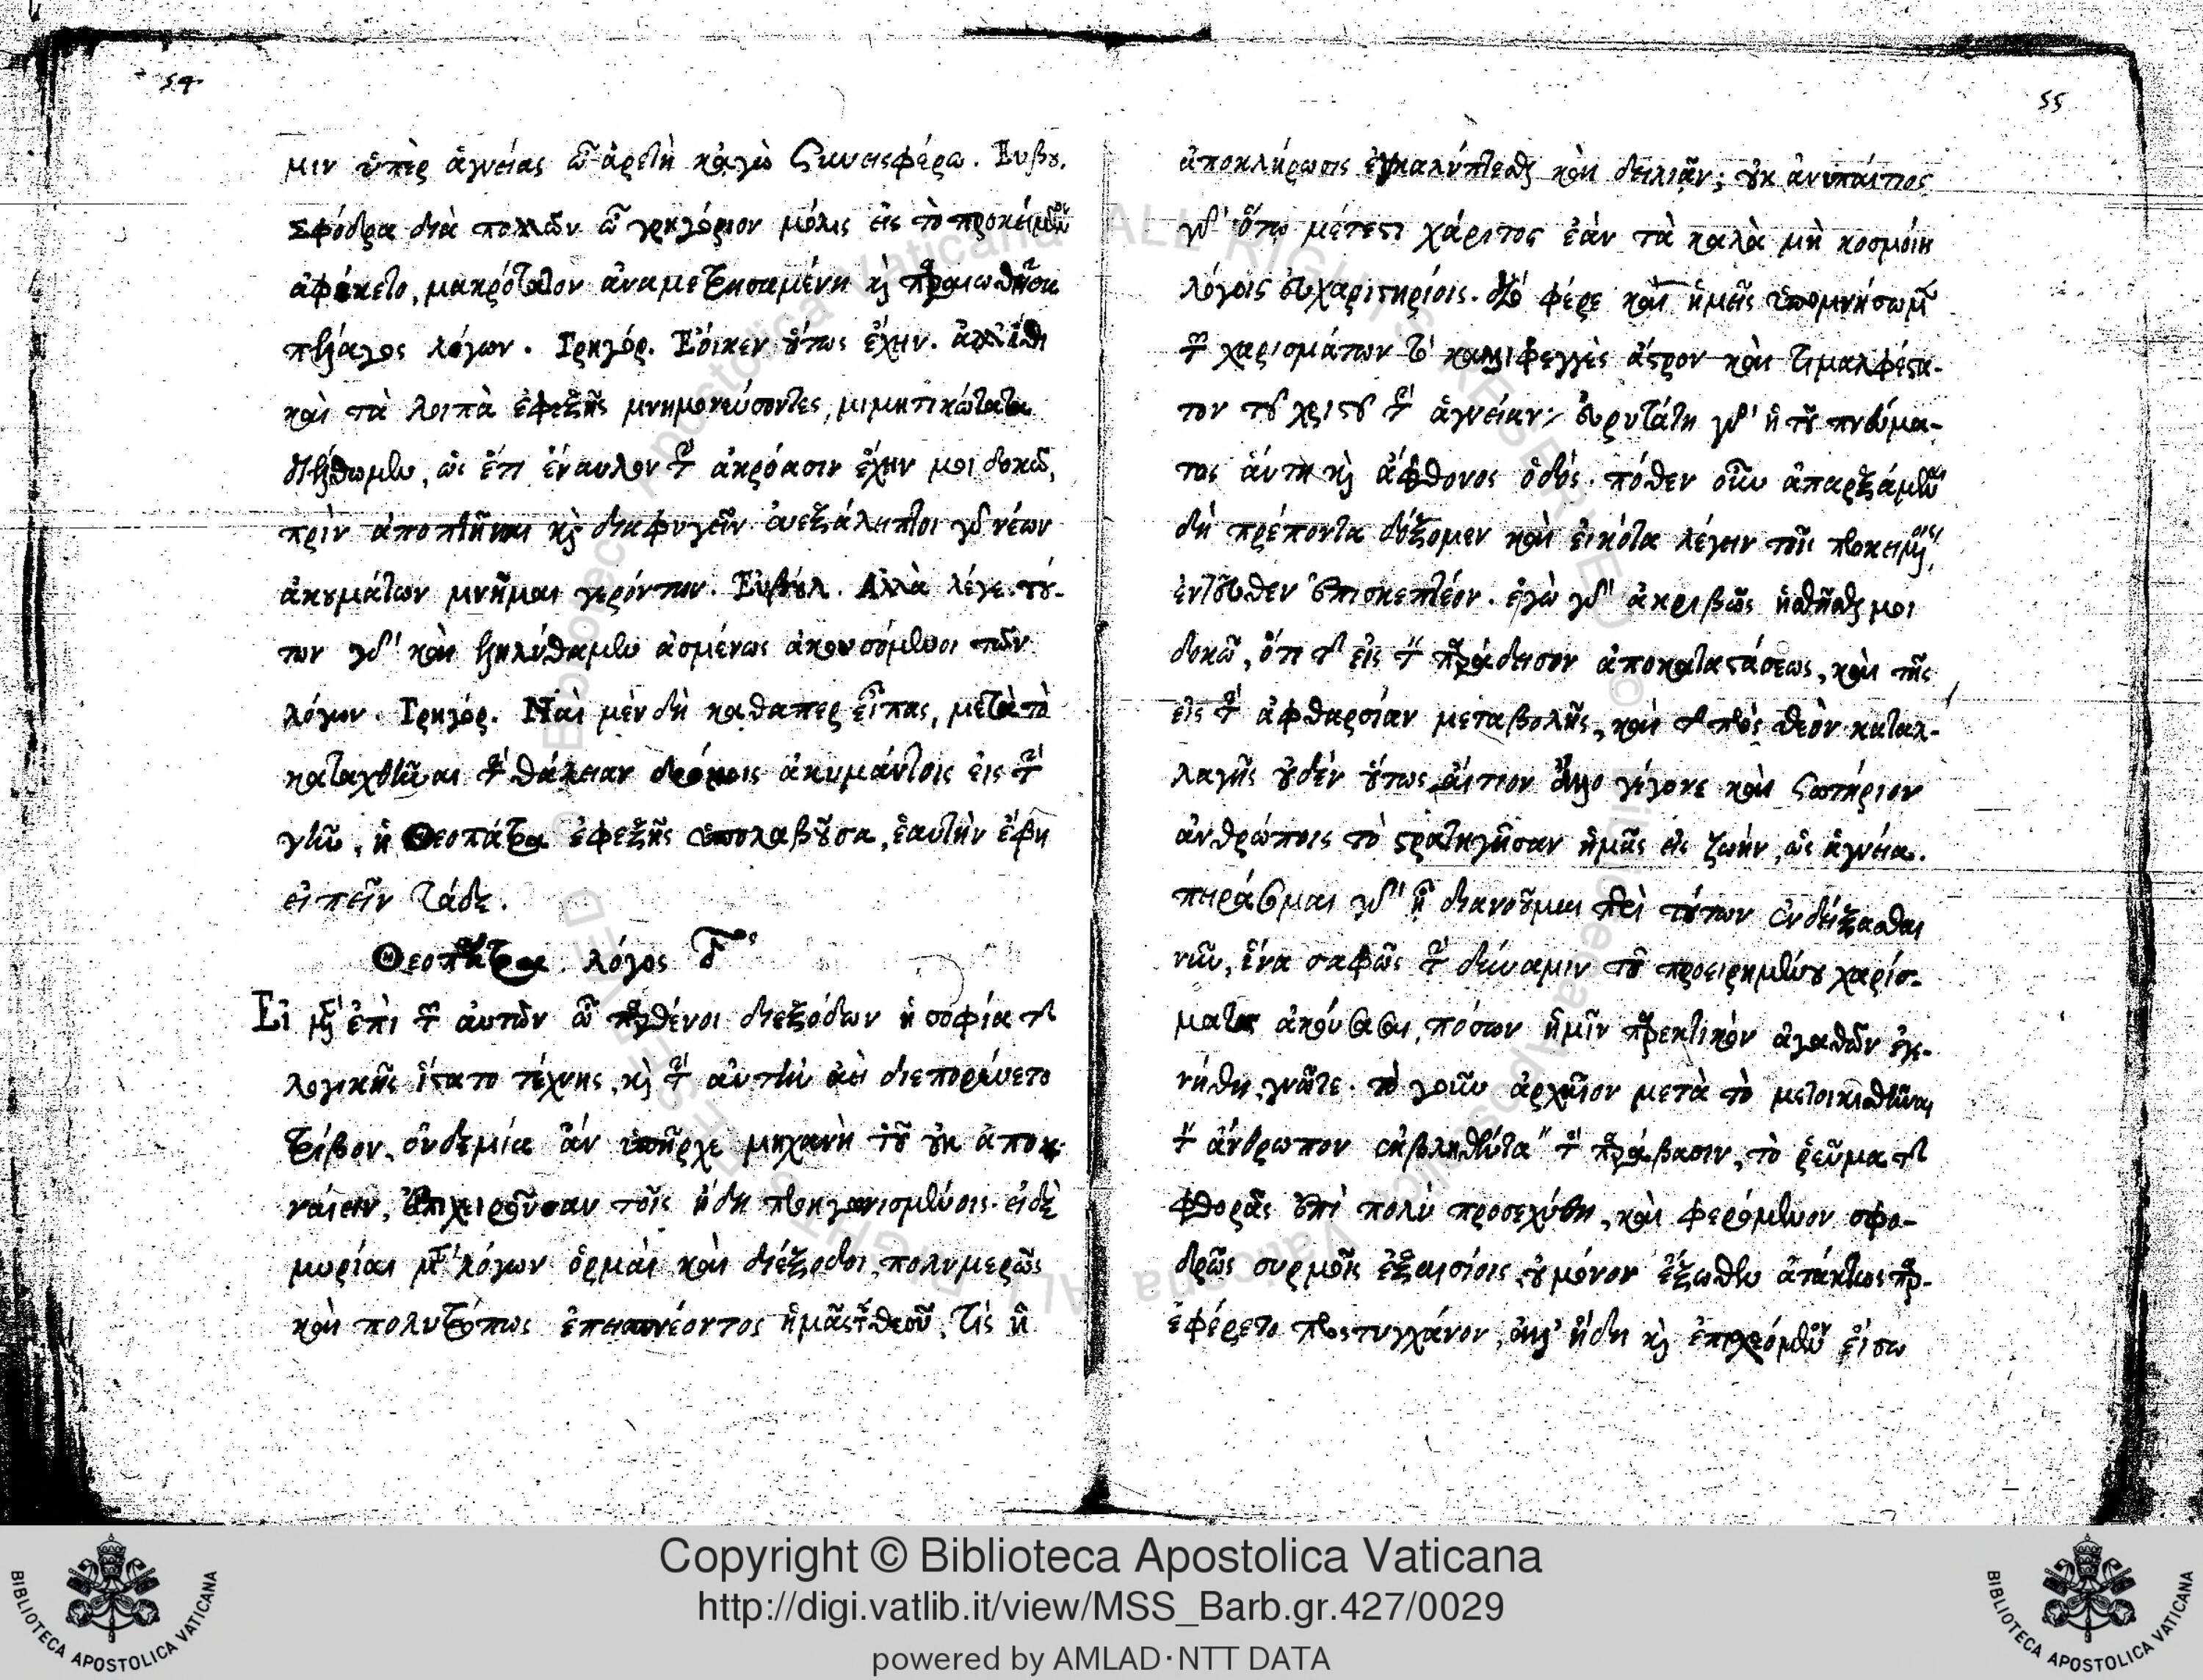 54
μιν ὑπὲρ ἁγνείας ὦ ἀρετὴ κἀγὼ συνεισφέρω. Εὐβȣ.
Σφόδρα διὰ πολλῶν ὦ γρηγόριον μόλις εἰς τὸ προκείμενον
ἀφίκετο, μακρότατον ἀναμετρησαμένη κ̀
πέλαγος λόγων. Γρηγόρ. Ἔοικεν οὕτως ἔχειν. ἀλλ'
καὶ τὰ λοιπὰ ἐφεξῆς μνημονεύσοντες, μιμητικώτατα
διέλθωμεν, ὡς ἔτι ἔναυλον τὴν ἀκρόασιν ἔχειν μοι δοκῶ,
πρὶν ἀποπτῆναι κ̀ διαφυγεῖν εὐεξάλειπτοι γὰρ νέων
ἀκουσμάτων μνῆμαι γερόντων. Εὐβούλ. Ἀλλὰ λέγε. τού-
των γὰρ καὶ ἐληλύθαμεν ἀσμένως ἀκουσόμενοι τῶν
λόγων. Γρηγόρ. Ναὶ μὲν δὴ καθάπερ εἶπας, μετὰ τὸ
καταχθῆναι τὴν θάλειαν δρόμοις ἀκυμάντοις εἰς τὴν
γῆν, ἡ Θεοπάτρα ἐφεξῆς ὑπολαβοῦσα, ἑαυτὴν ἔφη
εἰπεῖν τάδε.
Θεοπάτρα λόγος Δος
Εἰ μὲν ἐπὶ τῶν αὐτῶν ὦ παρθένοι διεξόδων ἡ σοφία τῆς
λογικῆς ἵστατο τέχνης, κ̀ τὴν αὐτὴν ἀεὶ διεπορεύετο
τρίβον, οὐδεμία ἂν ὑπῆρχε μηχανὴ τοῦ οὐκ ἀποκ-
ναίειν, ἐπιχειροῦσαν τοῖς ἤδη προηγωνισμένοις. εἰ δὲ
μυρίαι μὲν λόγων ὁρμαὶ καὶ διέξοδοι, πολυμερῶς
καὶ πολυτρόπως ἐπιπνέοντος ἡμᾶς τοῦ θεοῦ, τίς ἡ
55
ἀποκλήρωσις ἐγκαλύπτεσθαι καὶ δειλιᾶν; οὐκ ἀνυπαίτιος
γὰρ ὅτῳ μέτεστι χάριτος ἐὰν τὰ καλὰ μὴ κοσμοίη
λόγοις εὐχαριστηρίοις. φέρε καὶ ἡμεῖς ὑπομνήσωμεν
τῶν χαρισμάτων τὸ καλλιφεγγὲς ἄστρον καὶ τιμαλφέστα-
τον τοῦ χριστοῦ τὴν ἁγνείαν· εὐρυτάτη γὰρ ἡ τοῦ πνεύμα-
τος αὐτη κ̀ ἄφθονος ὁδός. πόθεν οὖν ἀπαρξάμενοι
δὴ πρέποντα δόξομεν καὶ εἰκότα λέγειν τοῖς προκειμένοις,
ἐντεῦθεν ἐπισκεπτέον. ἐγὼ γὰρ ἀκριβῶς ᾐσθῆσθαί μοι
δοκῶ, ὅτι τῆς εἰς τὸν παράδεισον ἀποκαταστάσεως, καὶ τῆς
εἰς τὴν ἀφθαρσίαν μεταβολῆς, καὶ τῆς πρὸς θεὸν καταλ-
λαγῆς οὐδὲν οὕτως αἴτιον ἄλλο γέγονε καὶ σωτήριον
ἀνθρώποις τὸ στρατηγῆσαν ἡμᾶς εἰς ζωήν, ὡς ἁγνεία.
πειράσομαι γὰρ ᾗ διανοοῦμαι περὶ τούτων ἐνδείξασθαι
νῦν, ἵνα σαφῶς τὴν δύναμιν τοῦ προειρημένου χαρίσ-
ματος ἀκούσασαι, πόσων ἡμῖν πρεκτικὸν ἀγαθῶν ἐγε-
νήθη, γνῶτε. τὸ γοῦν ἀρχαῖον μετὰ τὸ μετοικισθῆναι
τὸν ἄνθρωπον ἐκβληθέντα τὴν παράβασιν, τὸ ῥεῦμα τῆς
φθορᾶς ἐπὶ πολὺ προσεχύθη, καὶ φερόμενον σφο-
δρῶς συρμοῖς ἐξαισίοις οὐ μόνον ἔξωθεν ἀτάκτως παρ-
εφέρετο προστυγχάνον, ἀλλ' ἤδη κ̀ ἐπιχεόμενον εἴσω
Copyright © Biblioteca Apostolica Vaticana
http://digi.vatlib.it/view/MSS_Barb.gr.427/0029
powered by AMLAD·NTT DATA
BIBLIOTECA APOSTOLICA VATICANA
BIBLIOTECA APOSTOLICA VATICANA